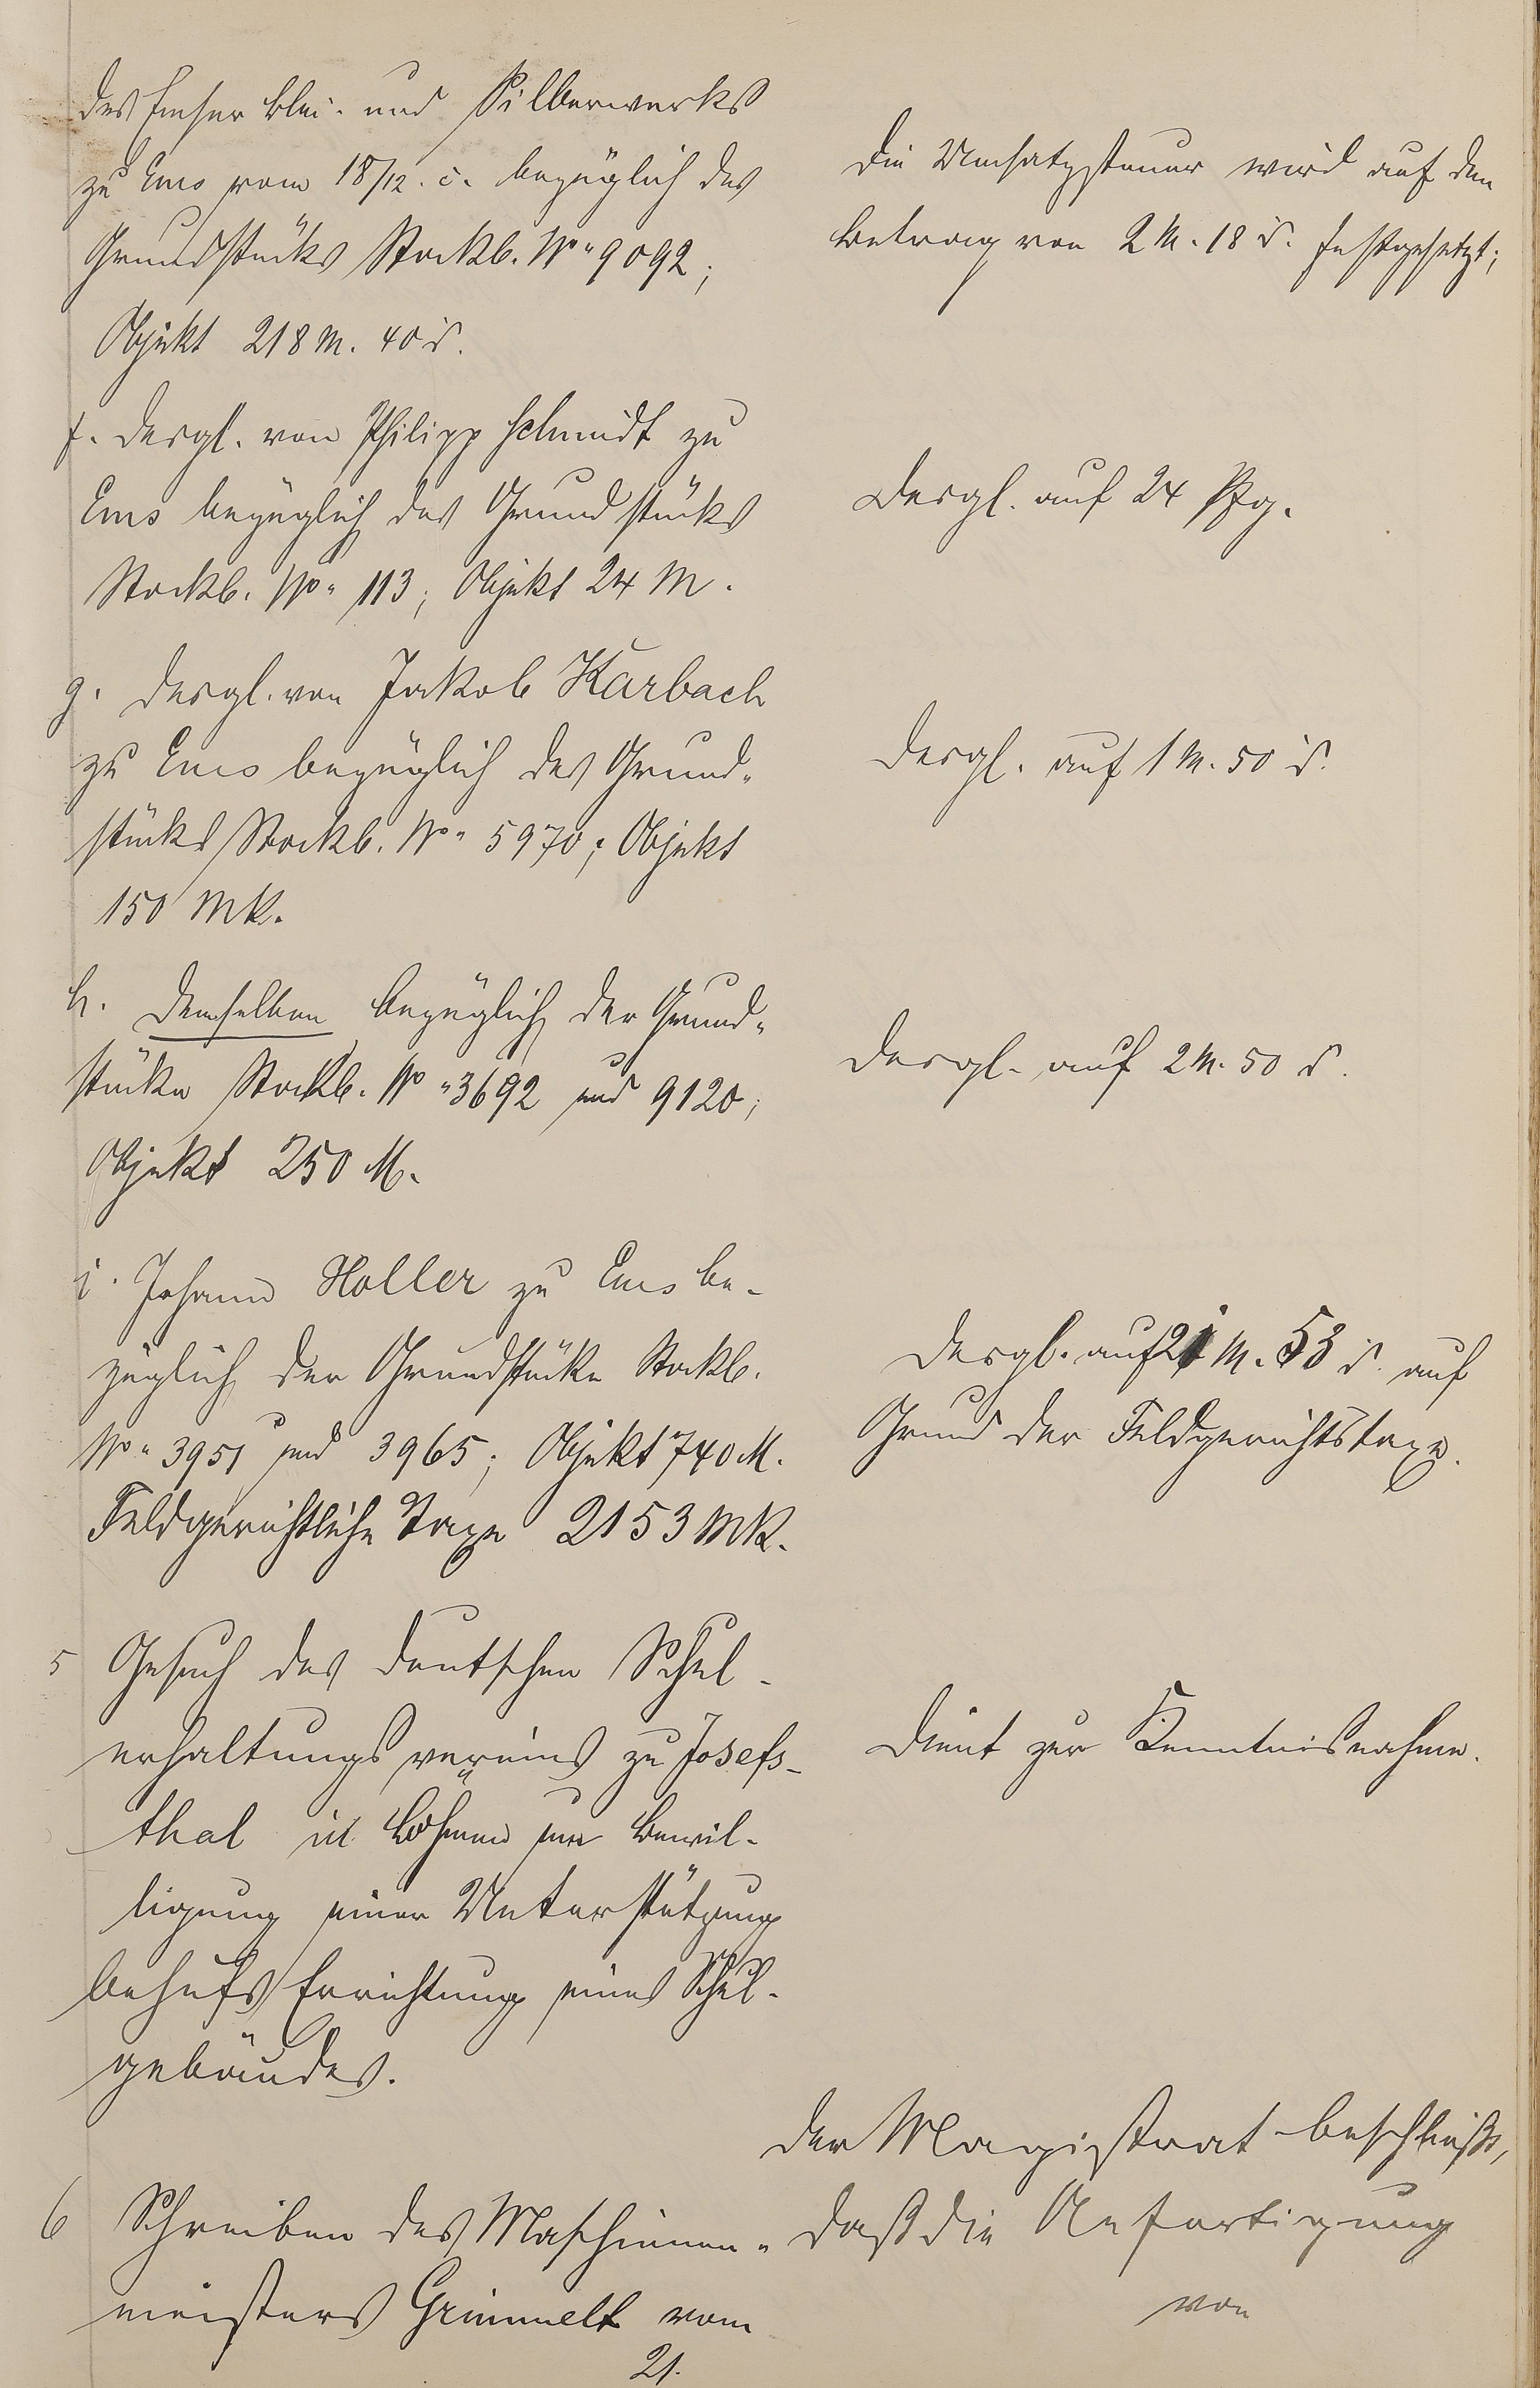 des Emser Blei- und Silberwerks
zu Ems vom 18/12. c. bezüglich des
Grundstücks Stockb. No 9092;
Objekt 218 M. 40 ₰.
Die Umsatzsteuer wird auf den
Betrag von 2 M. 18 ₰. festgesetzt;
f. desgl. von Philipp Schmidt zu
Ems bezüglich des Grundstücks
Stockb. No 113; Objekt 24 M.
Desgl. auf 24 Pfg.
g. desgl. von Jakob Karbach
zu Ems bezüglich des Grund-
stücks Stockb. No 5970; Objekt
150 Mk.
Desgl. auf 1 M. 50 ₰.
h. demselben bezüglich der Grund-
stücke Stockb. No 3692 und 9120;
Objekt 250 M.
Desgl. auf 2 M. 50 ₰.
i. Johann Holler zu Ems be-
züglich der Grundstücke Stockb.
No 3951 und 3965; Objekt 740 M.
Feldgerichtliche Taxe 2153 Mk.
Desgl. auf 21 M. 53 ₰. auf
Grund der Feldgerichtstaxe.
5 Gesuch des deutschen Schul-
erhaltungsvereins zu Josefs-
thal in Böhmen um Bewil-
ligung einer Unterstützung
behufs Errichtung eines Schul-
gebäudes.
Dient zur Kenntnisnahme.
6 Schreiben des Maschinen-
meisters Grimmelt vom
21.
Der Magistrat beschließt,
daß die Anfertigung
von